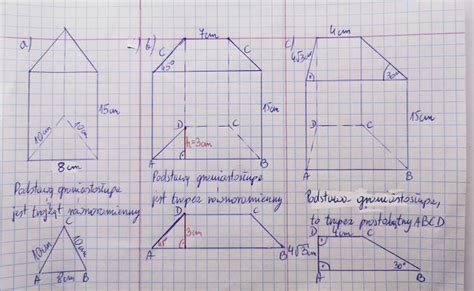 a)
15cm
10cm
10cm
8cm
Podstawą graniastosłupa
jest trójkąt równoramienny
C
10cm
10cm
A
8cm
B
b)
7cm
C
C
45°
15cm
D
C
h=3cm
A
B
Podstawą graniastosłupa
jest trapez równoramienny
D
C
3cm
45°
A
B
c)
4cm
4√3cm
30°
15cm
D
C
A
B
Podstawa graniastosłupa,
to trapez prostokątny ABCD
D
4cm
C
4√3cm
30°
A
B